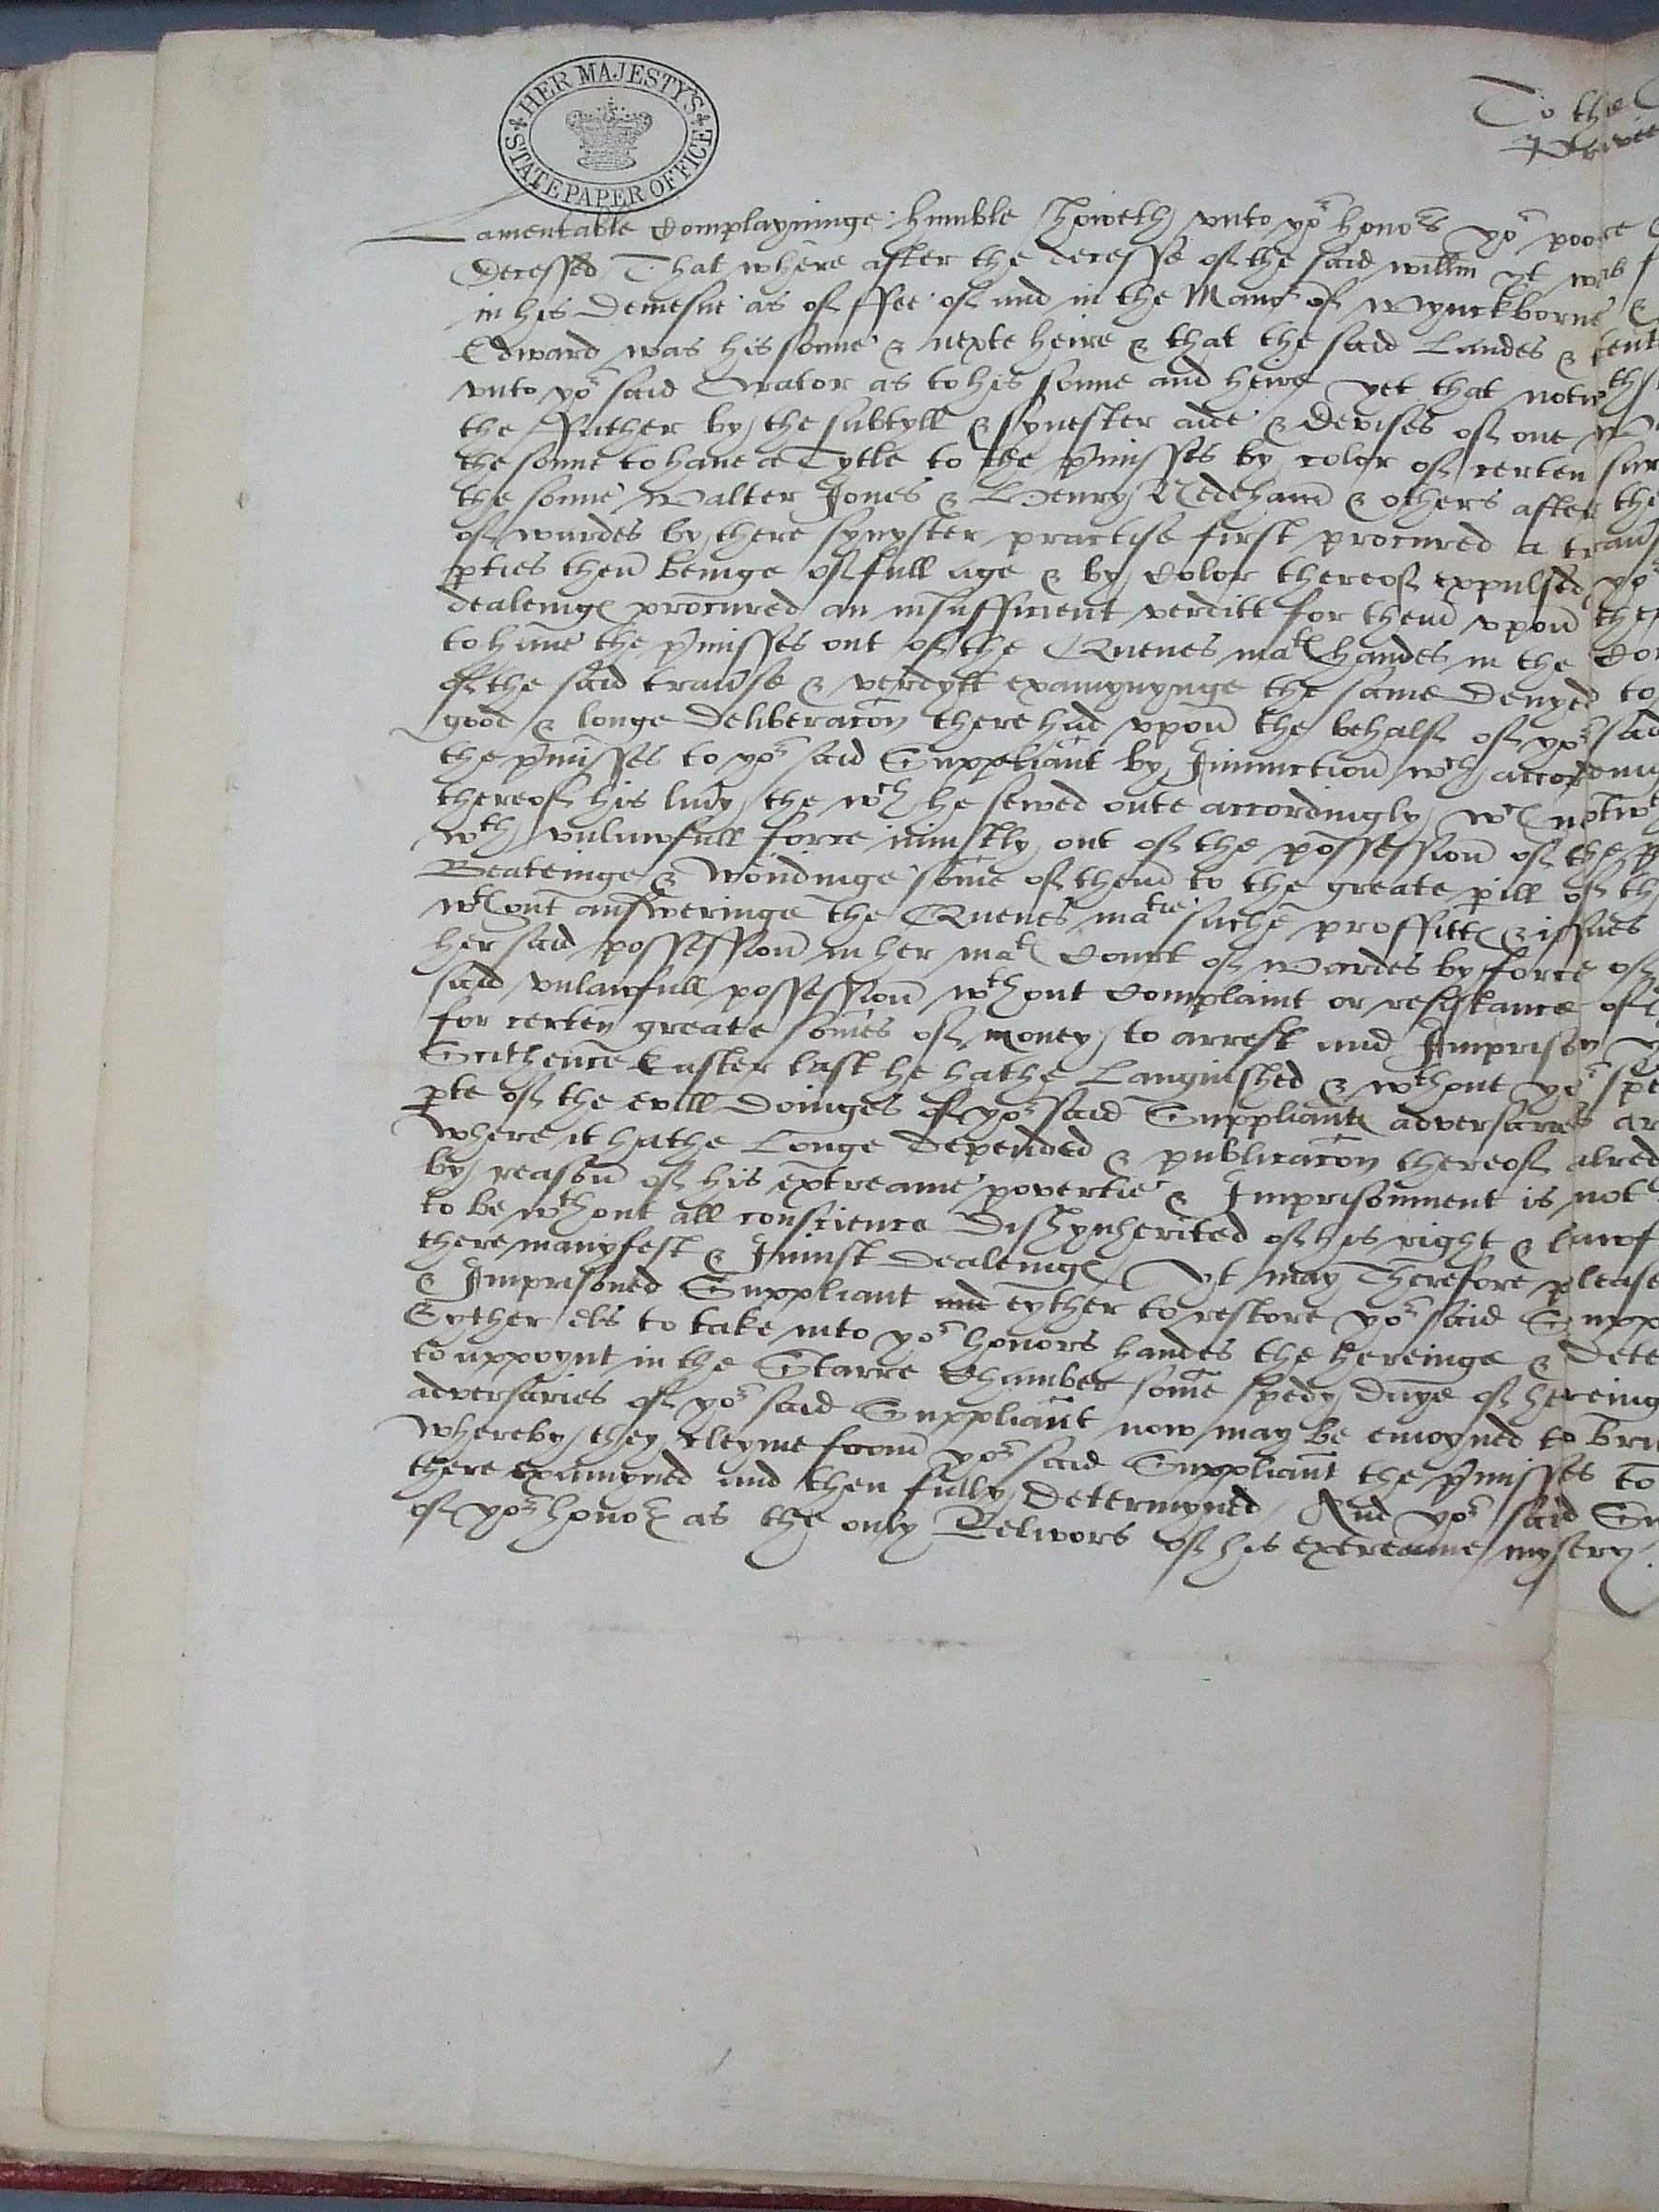 HER MAJESTY'S
STATE PAPER OFFICE
To the
Privie
Lamentable Complayninge humble showeth unto yor honors yor poore
decessed That where after the decesse of the said willm yt was
in his demesne as of ffee of and in the Manor of Wynckborne &
Edward was his sonne & nexte heire & that the said Landes & tent
unto yor said Orator as to his sonne and heire yet that notwths
the ffather by the subtyll & synester aide & devises of one
the sonne to have a Tytle to the pmisses by color of certen sur
the sonne Walter Jones & Henry Nedeham & others after the
of wardes by there synyster practise first procured a travs
pties then beinge of full age & by Color thereof expulsed yor
dealeinges procured an insufficient verditt for them upon the
to have the pmisses out of the Quenes mates handes in the Cou
of the said travse & verdytt examynynge the same denyed to
good & longe deliberacon there had upon the behalf of yor said
the pmisses to yor said Suppliant by Iniunction wch accordinge
thereof his livy the wch he sewed oute accordingly wch notwth
wth unlawfull force iniustly out of the possession of the p
Beateinge & woundinge some of them to the greate pill of th
wthout answeringe the Quenes matie suche proffittes & issues
her said possession in her mates Court of Wardes by force of
said unlawfull possession wthout Complaint or resistance of
for certen greate somes of money to arrest and Imprison y
Sithence Easter last he hathe Languished & wthout yor spe
pte of the evill doinges of yor said Suppliantes adversaries ar
where it hathe Longe depended & publicacon thereof alred
by reason of his extreame povertie & Imprisonment is not
to be wthout all conscience dishynherited of his right & lawf
there manyfest & Iniust dealeinges Yt may Therefore please
& Imprisoned Suppliant and eyther to restore yor said Supp
Eyther els to take into yor honors handes the hereinge & dete
to appoynt in the Starre Chamber some spedy daye of hereing
adversaries of yor said Suppliant now may be enioyned to Brin
whereby they cleyme from yor said Suppliant the pmisses to
there examyned and then fully determyned And yor said Su
of yor honors as the only Relivors of his extreame mysery